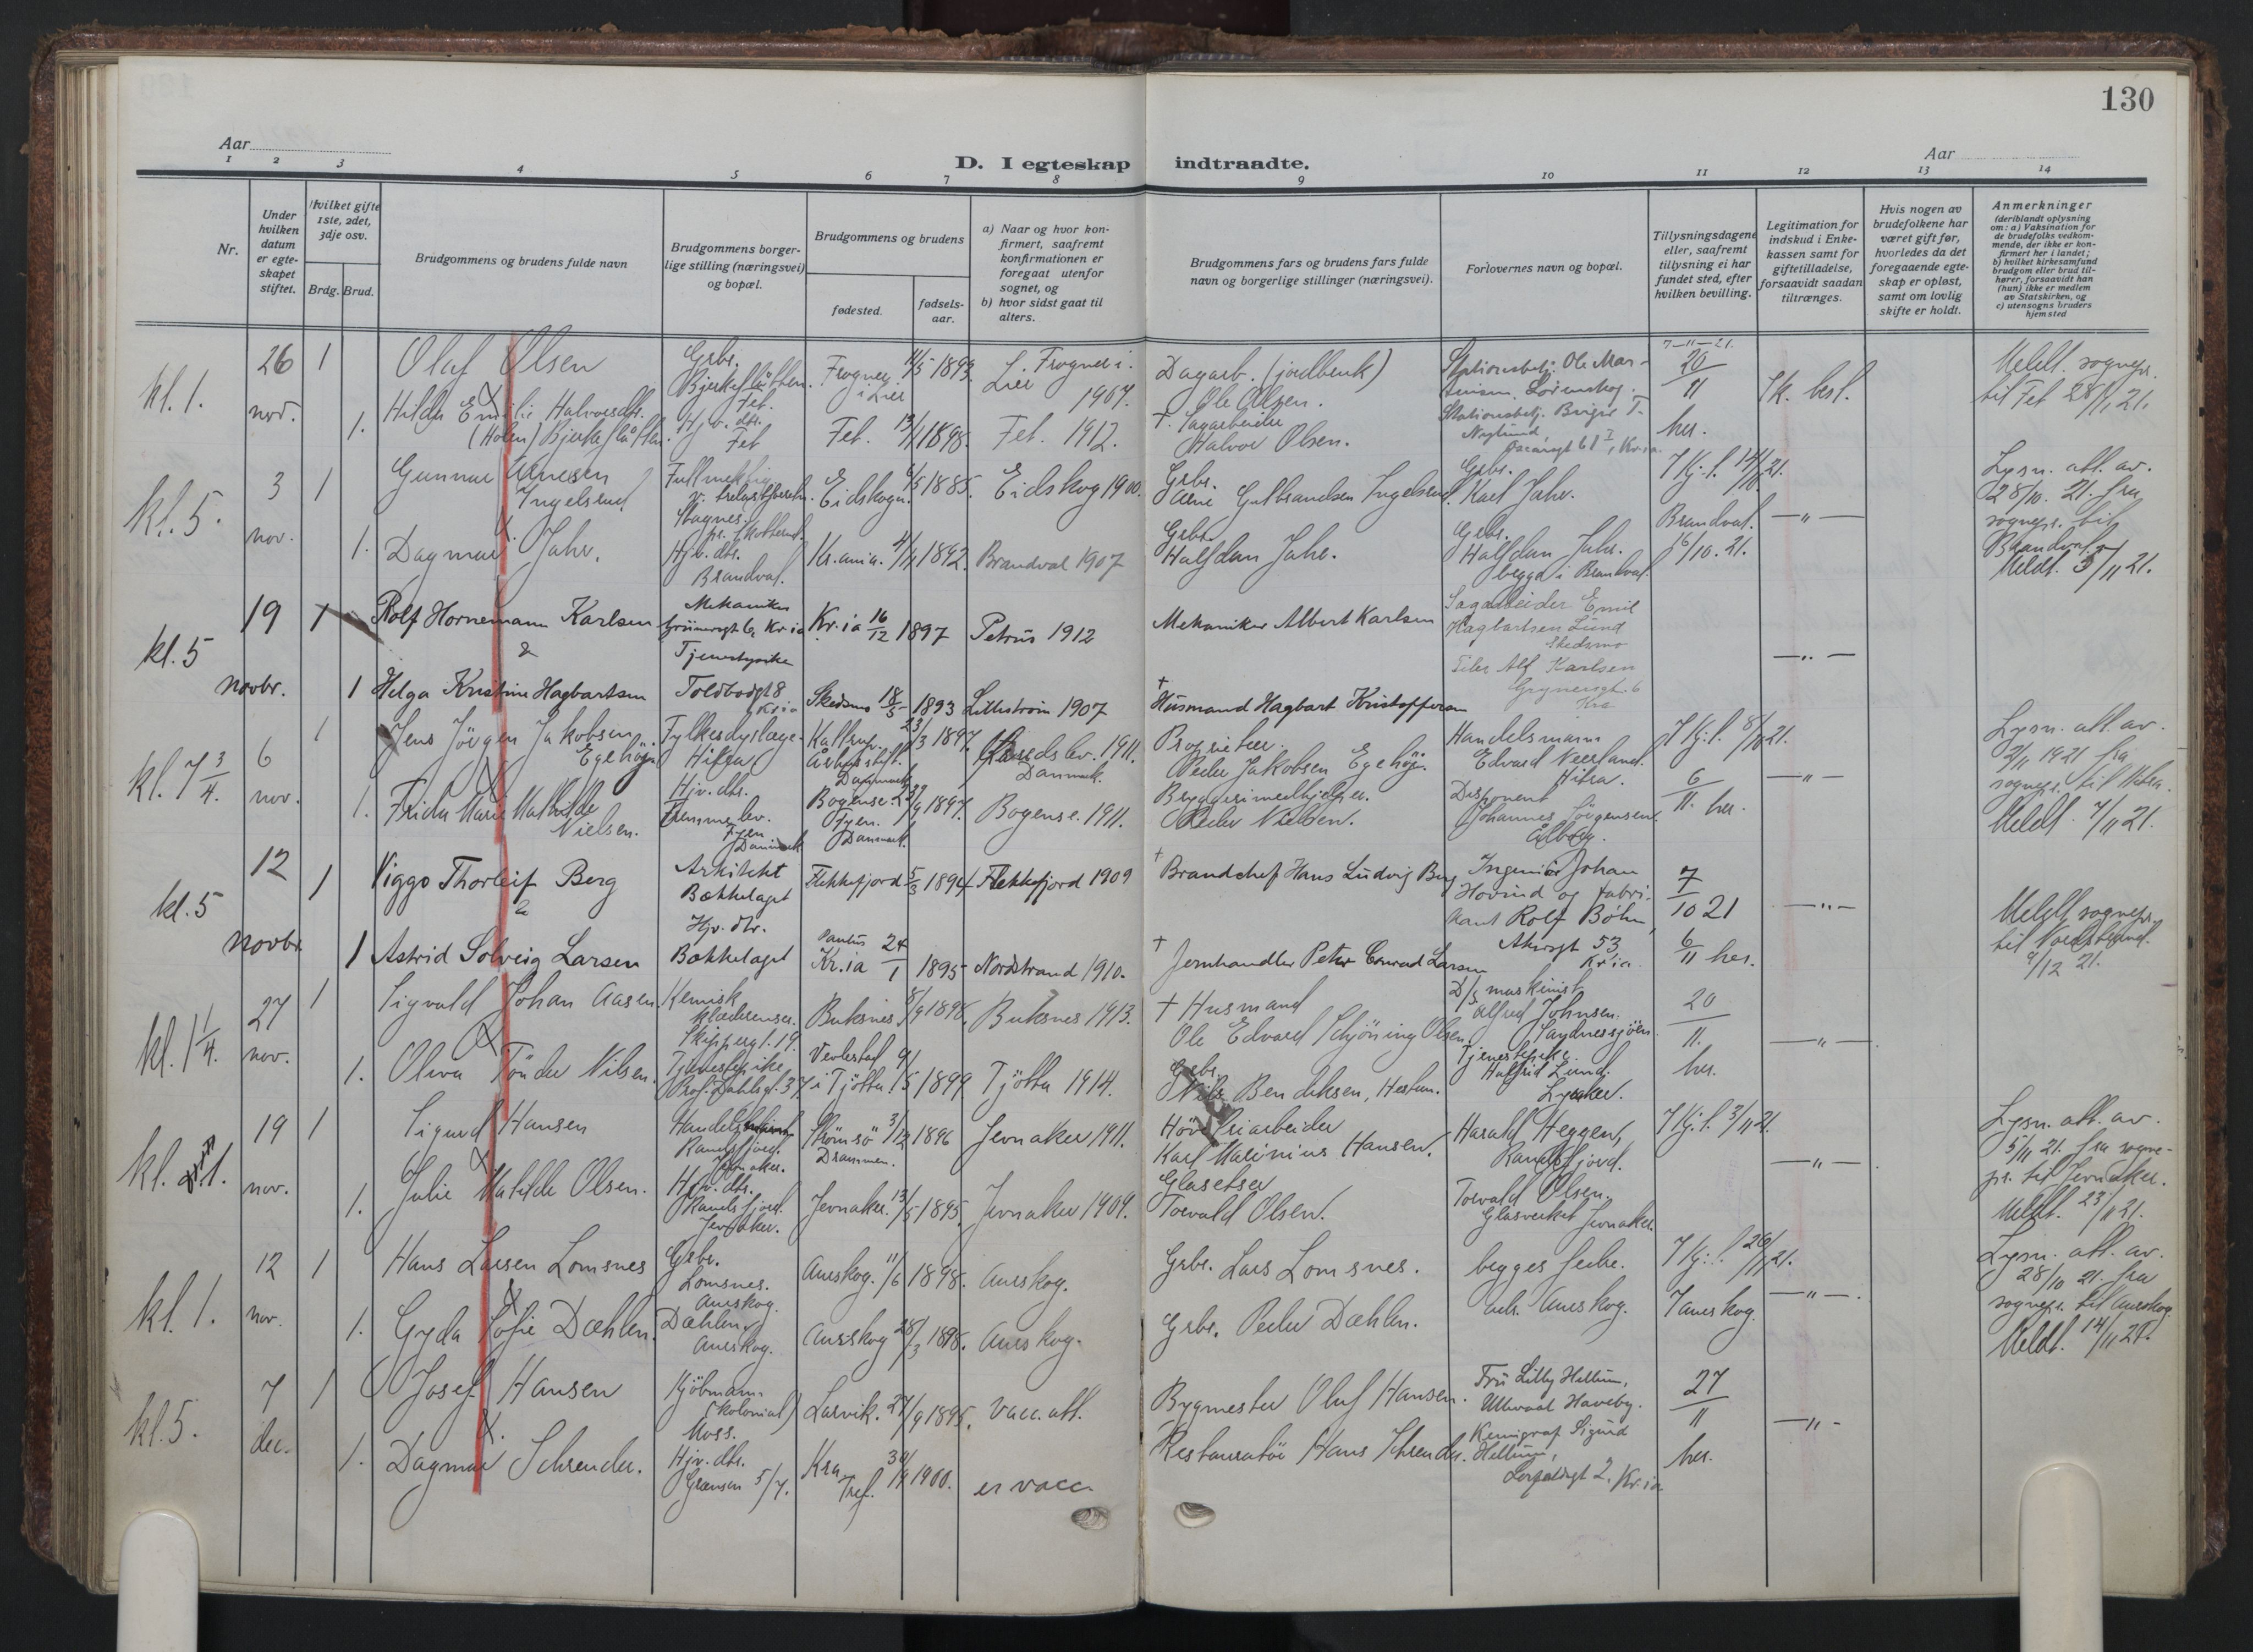 130
Aar
Aar
D. I egteskap indtraadte.
1 2 3 4 5 6 7 8 9 10 11 12 13 14
Nr.
Under hvilken datum er egteskapet stiftet.
Hvilket gifte 1ste, 2det, 3dje osv.
Brdg. Brud.
Brudgommens og brudens fulde navn
Brudgommens borgerlige stilling (næringsvei) og bopæl.
Brudgommens og brudens
fødested.
fødsels-aar.
a) Naar og hvor konfirmert, saafremt konfirmationen er foregaat utenfor sognet, og
b) hvor sidst gaat til alters.
Brudgommens fars og brudens fars fulde navn og borgerlige stillinger (næringsvei).
Forlovernes navn og bopæl.
Tillysningsdagene eller, saafremt tillysning ei har fundet sted, efter hvilken bevilling.
Legitimation for indskud i Enkekassen samt for giftetilladelse, forsaavidt saadan tiltrænges.
Hvis nogen av brudefolkene har været gift før, hvorledes da det foregaaende egteskap er opløst, samt om lovlig skifte er holdt.
Anmerkninger (deriblandt oplysning om: a) Vaksination for de brudefolks vedkommende, der ikke er konfirmert her i landet; b) hvilket kirkesamfund brudgom eller brud tilhører, forsaavidt han (hun) ikke er medlem av Statskirken, og c) utensogns bruders hjemsted
kl. 1. 26 nov. 1 Olaf Olsen Grbr. Bjerkeslåtten. Fet. Frogner i Lier 11/5 1893. Frogner i Lier 1907. Dagarb. (jordbruk) Ole Olsen. Stationsbetj. Ole Martinsen, Lörenskog. 7-11-21. 20/11 Meldt sognepr. til Fet 28/11 21.
& 1. Hilda Emilie Halvorsdtr. (Holen) Bjerkeslåtten. Hjv. dtr. Fet Fet. 13/1 1898. Fet. 1912. † Sagarbeider Halvor Olsen. Stationsbetj. her.
kl. 5. 3 nov. 1 Gunnar Arnesen Ingelsrud Fullmektig Eidskogen. 6/5 1885. Eidskog 1900. Grbr. Arne Gulbrandsen Ingelsrud. Grbr. Karl Jahr. Lysn. att. av. 28/10. 21. fra sognepr. til Brandval.
& 1. Dagmar Jahr. Hjv. dtr. Brandval. Kr.ania. 4/11 1892. Brandval 1907 Grbr. Halfdan Jahr. Grbr. Halfdan Jahr. begge i Brandval. Brandval. 16/10. 21. —"— Meldt. 5/11 21.
kl. 5 19 novbr. 1 Rolf Hornemann Karlsen Mekaniker Grünersgt 6, Kr.ia Kr.ia 16/12 1897 Petrus 1912 Mekaniker Albert Karlsen Sagarbeider Emil Hagbartsen Lund Skedsmo
& 1 Helga Kristine Hagbartsen Tjenestepike Toldbodgt 8 Kr.ia Skedsmo 18/5 1893 Lillestrøm 1907 † Husmand Hagbart Kristoffersen Alf Karlsen Grynersgt. 6 Kra —"—
kl. 7 3/4. 6 nov. 1 Jens Jörgen Jakobsen Egehöj. Fylkesdyrlæge. Hitra Kattrup. Århusstift. Danmark 23/3 1897. 1911. Danmark. Proprietær. Peder Jakobsen Egehöj. Handelsmann Edvard Hitra. Lysn. att. av. 2/11 1921 fra sognepr. til Hitra.
& 1. Frida Marie Mathilde Nielsen. Hjv. dtr. Fyen Danmark Bogense. Fyen. Danmark. 1897. Bogense. 1911. Bryggerimedhjelper. Peder Nielsen. Disponent Johannes Jörgensen. Ålborg. 6/11. her. —"— Meldt. 7/11 21.
kl. 5 12 novbr. 1 Viggo Thorleif Berg Arkitekt Bækkelaget Flekkefjord 5/3 1894 Flekkefjord 1909 † Brandchef Hans Ludvig Berg Ingeniör Johan Hovind og fabrikant Rolf Böhn, Akersgt 53 Kr.ia 7/10 21 —"— Meldt sognepr. til Nordstrand. 9/12 21.
& 1 Astrid Solveig Larsen Hjv. dtr. Bækkelaget Paulus Kr.ia 24/1 1895 Nordstrand 1910. † Jernhandler Peter Conrad Larsen 6/11 her.
kl. 1 1/4. 27 nov. 1 Sigvald Johan Aasen. Kemisk klæderenser. Skippergt. 19. Buksnes. 8/9 1898. Buksnes 1913. † Husmand Ole Edvard Schjöning Olsen D/S maskinist Alfred Johnsen. Sandnessjöen. 20/11.
& 1. Oliva Tönder Nilsen. Tjenestepike Prof. Dahlsgt. 37 i Tjötta. 9/5 1899 Tjötta 1914. Grbr. Nils Bendiksen, Hestun. Tjenestepike. Halfrid Lund. Lysaker. her. —"—
kl. 1. 19 nov. 1 Sigurd Hansen Randsfjord. Jevnaker. Strömsö Drammen. 3/12 1896 Jevnaker 1911. arbeider Karl Marinius Hansen. Harald Heggen, Randsfjord. 3/11 21. Lysn. att. av. 5/11 21. fra sognepr. til Jevnaker.
& 1. Julie Matilde Olsen. Hjv. dtr. Randsfjord. Jevnaker. Jevnaker. 13/5 1895. Jevnaker 1909. Torvald Olsen. Torvald Olsen. Glasverket Jevnaker. —"— Meldt. 23/11 21.
kl. 1. 12 nov. 1 Hans Larsen Lomsnes Grbr. Lomsnes. Aurskog. Aurskog. 11/6 1898. Aurskog. Grbr. Lars Lomsnes. begges fedre. Lysn. att. av. 28/10 21. fra sognepr. til Aurskog.
& 1. Gyda Sofie Dæhlen. Dæhlen, Aurskog. Aurskog 28/3 1898. Aurskog. Grbr. Peder Dæhlen. adr. Aurskog. I Aurskog. —"—. Meldt. 14/11 21.
kl. 5. 7 dec. 1 Josef Hansen Kjöbmann (kolonial) Moss. Larvik. 27/9 1895. vacc. att. Bygmester Oluf Hansen. Fru Lilly Hellum, Ullevaal Haveby. 27/11
&. 1. Dagmar Schrender. Hjv. dtr. Grænsen 5/7. Kra Tref. 1900. er vacc. Restauratör Hans Schrender. Kemigraf Sigurd Hellum, 2, Kr.ia her. —"—